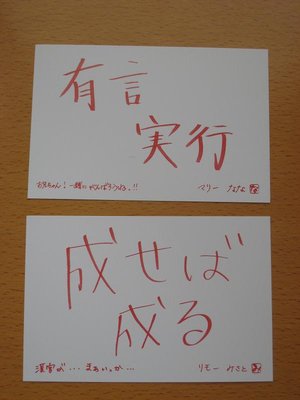 有言
実行
お兄ちゃん!一緒にがんばろうね!!
マリー ななな
成せば
成る
漢字が…まぁいっか…
リモー みさと